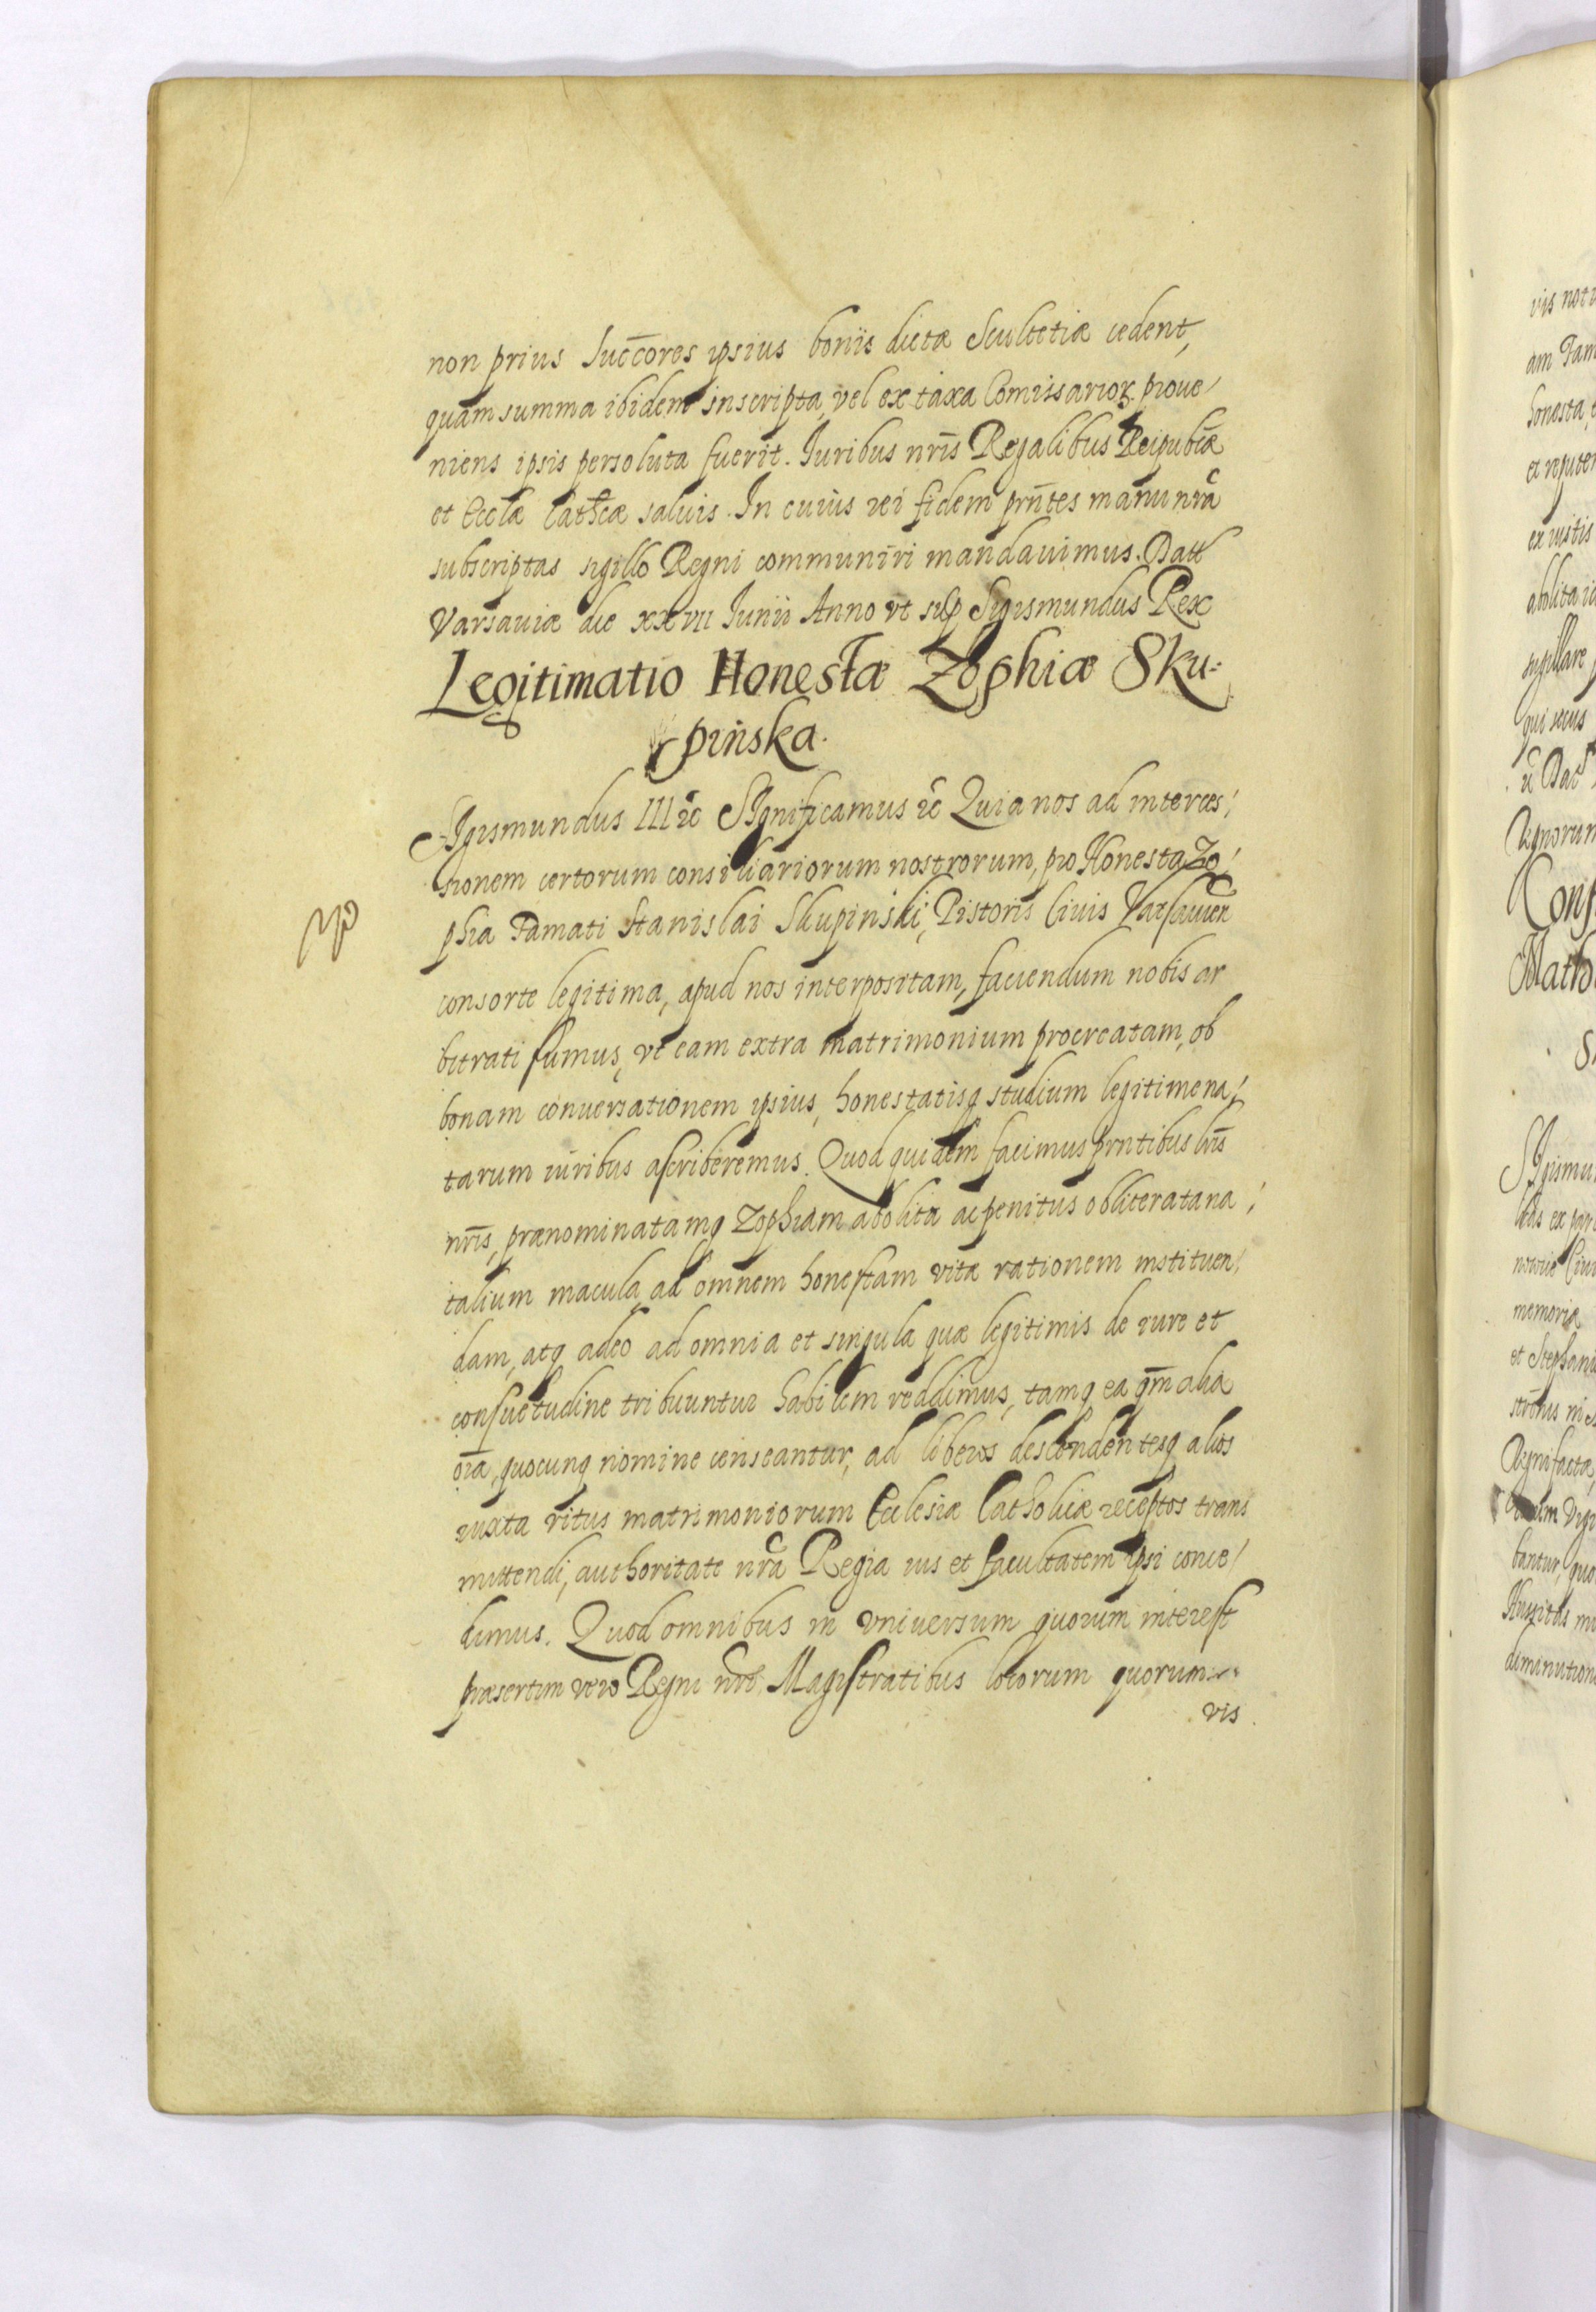 non prius Succōres ipsius boniis dictæ Scultetiæ cedent,
quam summa ibidem inscripta, vel ex taxa Comissarioꝝ proue/
niens ipsis persoluta fuerit. Iuribus nr̄is Regalibus Reipubl̄æ
et Eccl̄æ Cathcæ saluis. In cuius rei fidem prn̄tes manu nr̄a
subscriptas sigillo Regni communiri mandauimus. Datt
Varsauiæ die xxvii Iunii Anno vt sup Sigismundus Rex
Legitimatio Honestæ Zophiæ Sku-
pinska.
Sigismundus III ꝛc Significamus ꝛc Quia nos ad interces/
sionem certorum consiliariorum nostrorum, pro Honesta Zo/
phia Famati Stanislai Skupinski, Pistoris Ciuis Varsauien
consorte legitima, apud nos interpositam, faciendum nobis ar
bitrati sumus, vt eam extra matrimonium procreatam, ob
bonam conuersationem ipsius, honestatisq studium legitime na/
tarum iuribus ascriberemus. Quod quidem facimus prntibus lr̄is
nr̄is, prænominatamq Zophiam abolita ac penitus obliterata na/
talium macula ad omnem honestam vitæ rationem instituen/
dam, atq adeo ad omnia et singula quæ legitimis de iure et
consuetudine tribuuntur habilem reddimus, tamq ea qm̄ alia
oīa, quocunq nomine censeantur, ad liberos descendentesq alios
iuxta ritus matrimoniorum Ecclesiæ Catholicæ receptos trans
mittendi, authoritate nr̄a Regia ius et facultatem ipsi conce/
dimus. Quod omnibus in vniuersum quorum interest
præsertim vero Regni nri Magistratibus locorum quorum
vis